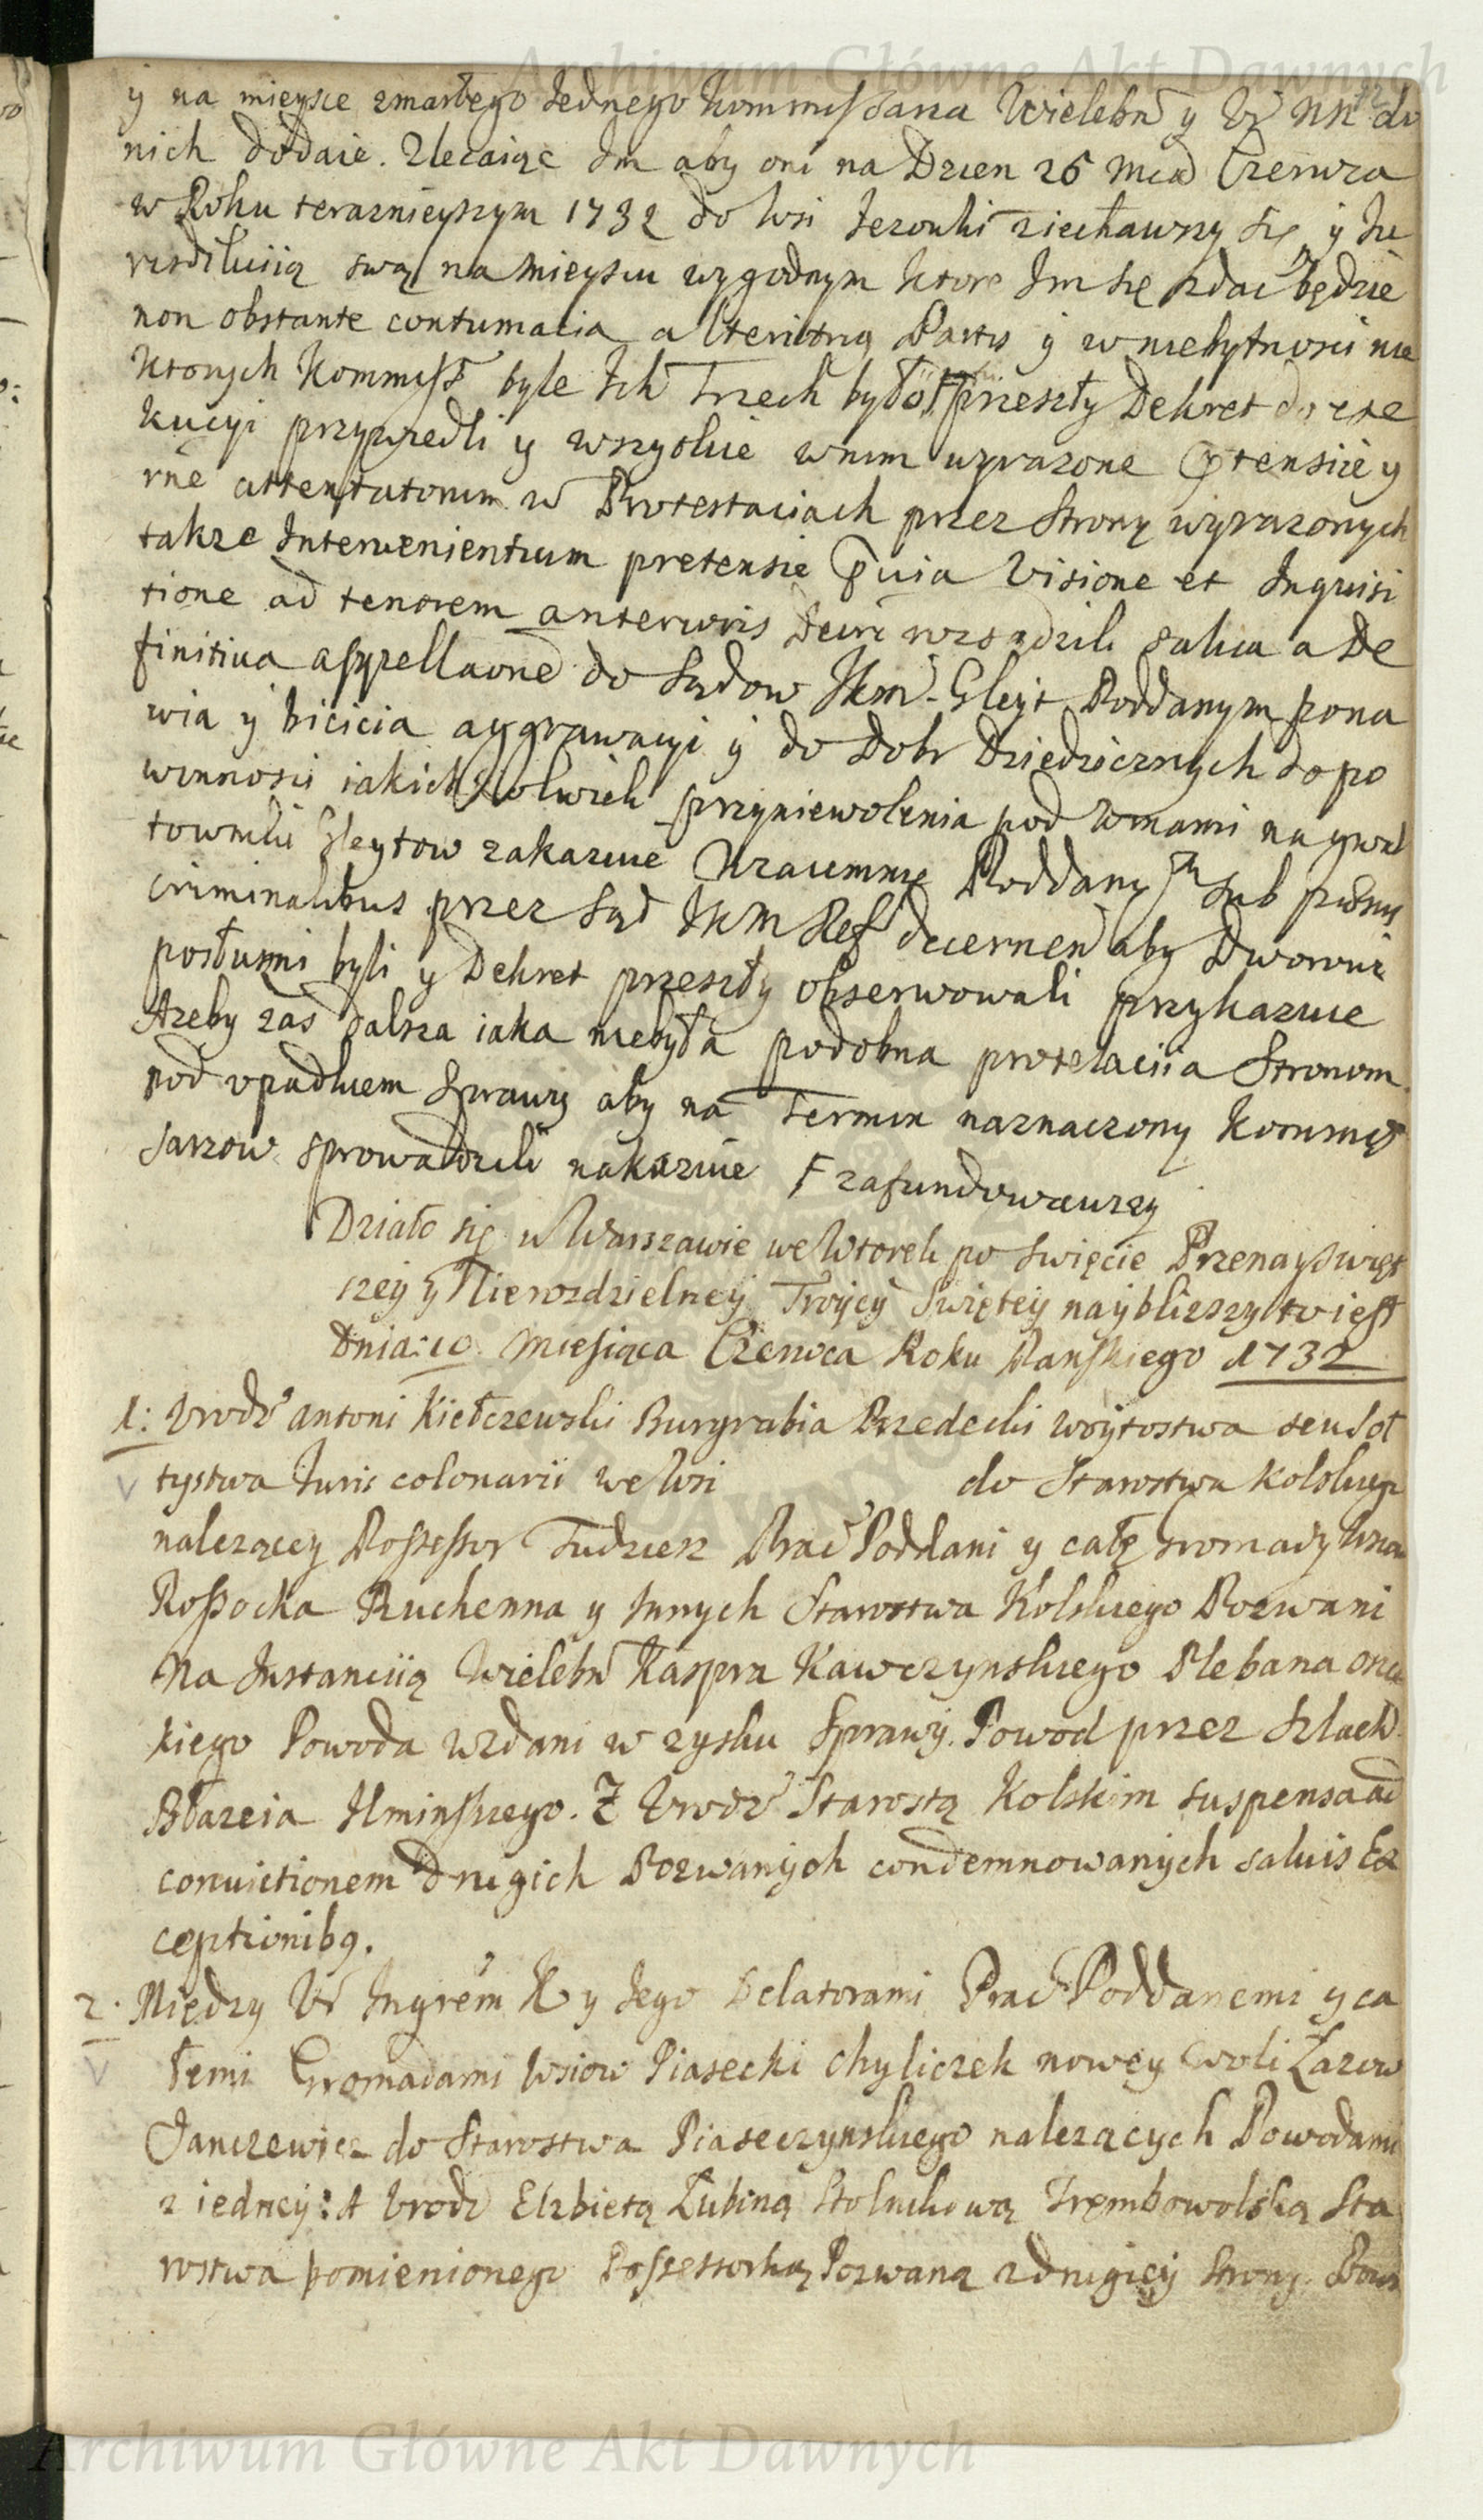 Archiwum Główne Akt Dawnych
12
y na mieysce zmarłego Jednego Kommissarza Wielebn y Ur NN do
nich dodaie. Zlecaiąc Im aby oni na Dzien 26 Mca Czerwca
w Roku teraznieyszym 1732 do Wsi Jezorki ziechawszy się y Ju
risdikciią swą na mieyscu wygodnym ktore Im się zdac będzie
non obstante contumacia alterutrius Partis y w niebytnosci nie
ktorych Kommiss byle Ich Trzech było przeszły Dekret do exe
kucyi przywiedli y wszystkie w nim wyrazone Ptensiie y
rne attentatorum w Protestaciach przez Strony wyrazonych
takze Intervenientium pretensie pvia Visione et Inquisi
tione ad tenorem anterioris Decri rozsądzili salva a De
finitiva appellaone do Sądow JKM. Gleyt Poddanym pona
wia y bicicia aggrawacyi y do Dobr Dziedzicznych do po
winnosci iakichkolwiek przyniewolenia pod winami na gwał
townikii Gleytow zakazuie Wzaiemnie Poddany m sub pænis
criminalibus przez Sąd JKM Ref decernen aby Dworowi
posłuszni byli y Dekret przeszły obserwowali przykazuie
Azeby zas dalsza iaka niebyła podobna protelaciia Stronom
pod upadkiem Sprawy aby na Termin naznaczony Kommis
sarzow sprowadzili nakazuie F zafundowawszy
Działo się w Warszawie we Wtorek po Swięcie Przenayswięt
szey y Nierozdzielney Troycy Swiętey nayblizszy to iest
Dnia: 10 Miesiąca Czerwca Roku Panskiego 1732
1: Urodz Antoni Kiełczewski Burgrabia Przedecki Woytostwa seu Soł
tystwa Iuris colonarii we Wsi do Starostwa Kolskiego
nalezącey Possessor Tudziesz Prac Poddani y całę Gromady Wsiow
Rossocka Ruchenna y Innych Starostwa Kolskiego Pozwani
Na Instanciią Wielebn Kaspra Kawczynskiego Plebana
kiego Powoda Wzdani w zysku Sprawy. Powod przez Szlach
Błazeia Ilminskiego. Z Urodz Starostą Kolskim suspensa ad
convictionem drugich Pozwanych condemnowanych salvis Ex
ceptionibq.
2. Między Ur Ingrem K y Jego Delatorami Prac Poddanemi y ca
łemi Gromadami Wsiow Piasecki Chyliczek nowey Woli Łazow
Janczewicz do Starostwa Piaseczynskiego nalezących Powodami
z iedney: A Urodz Elzbietą Zubiną Stolnikową Trembowolską Sta
rostwa pomienionego Possessorką Pozwaną z drugiey Strony
Archiwum Główne Akt Dawnych